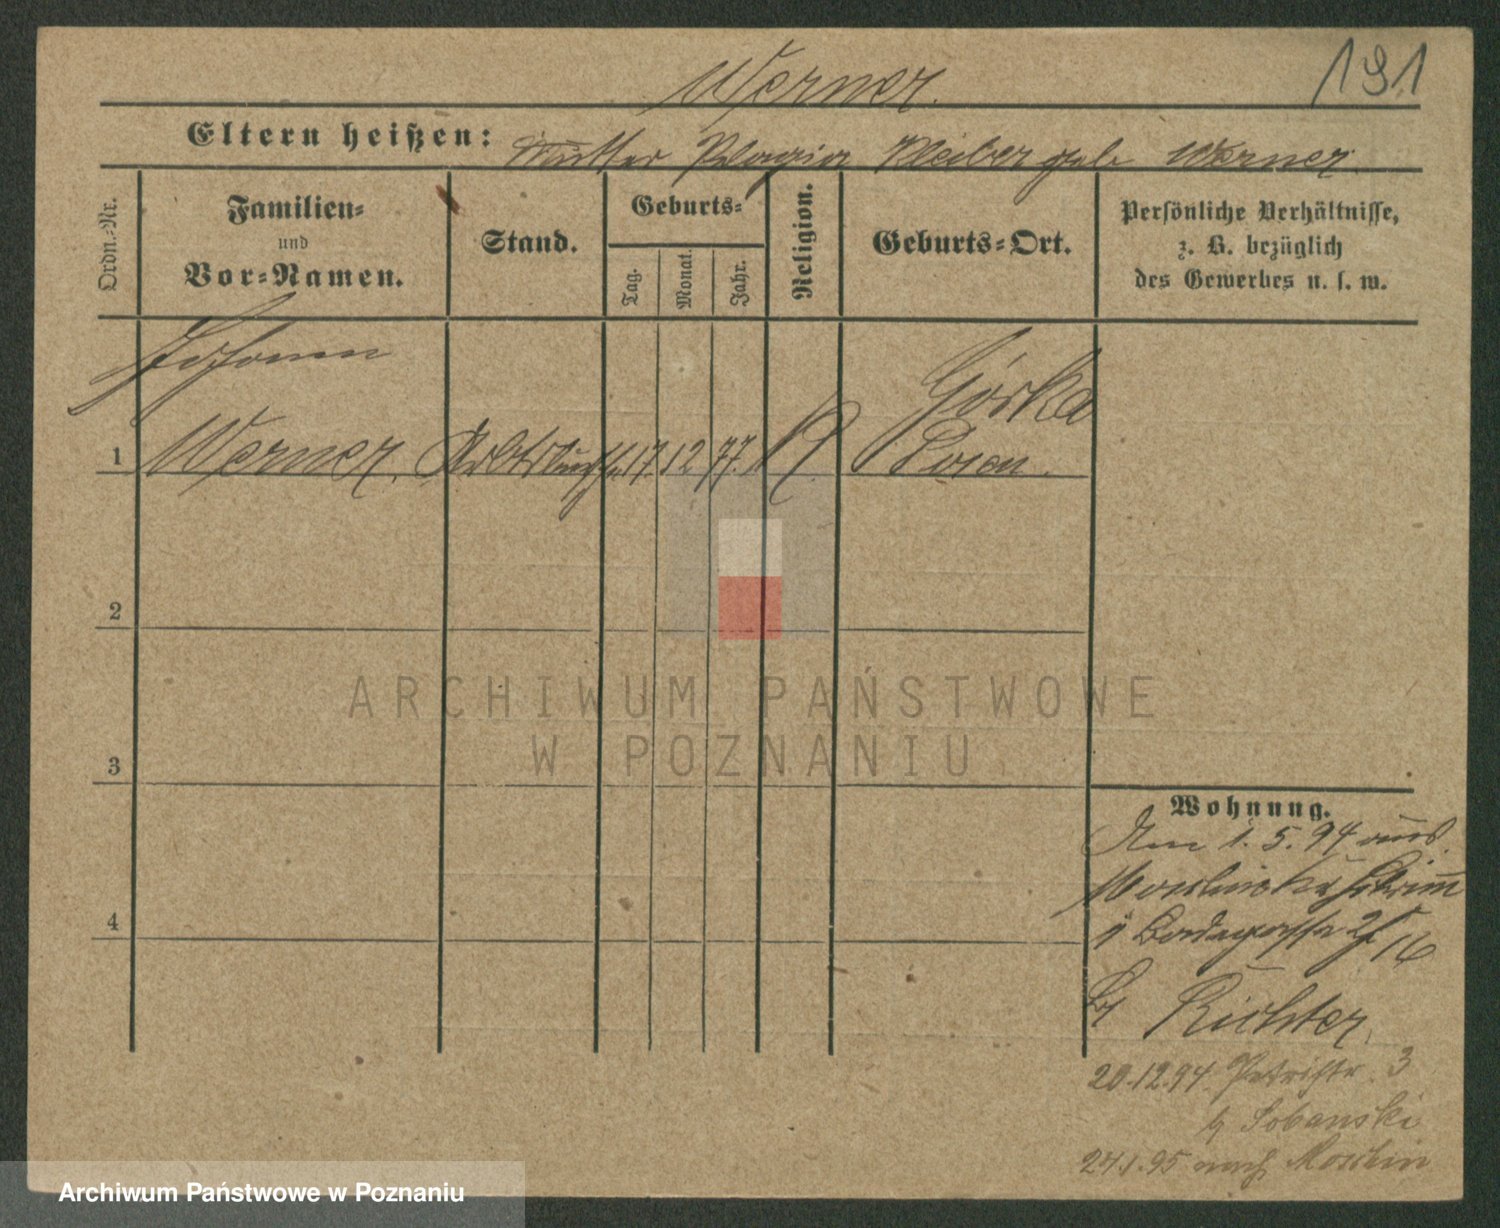 Werner.
191
Eltern heißen: Mutter Pelagia Kleiber geb Werner.
Ordn.-Nr.
Familien-
und
Vor-Namen.
Stand.
Geburts-
Tag.
Monat.
Jahr.
Religion.
Geburts-Ort.
Persönliche Verhältnisse,
z. B. bezüglich
des Gewerbes u. s. w.
Johann
Górka
1 Werner. 17. 12 77. Posen.
2
3
4
ARCHIWUM PAŃSTWOWE
W POZNANIU
Wohnung.
Am 1. 5. 94 aus
Schrimm
16
Richter
20.12.94 Petristr. 3
b Sobanski
24.1.95 nach Moschin
Archiwum Państwowe w Poznaniu